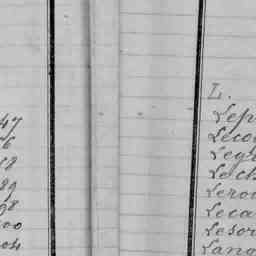 47
6
18
89
98
00
04
L.
Lep
Leco
Leg
Lech
Lero
Leca
Leso
Lano